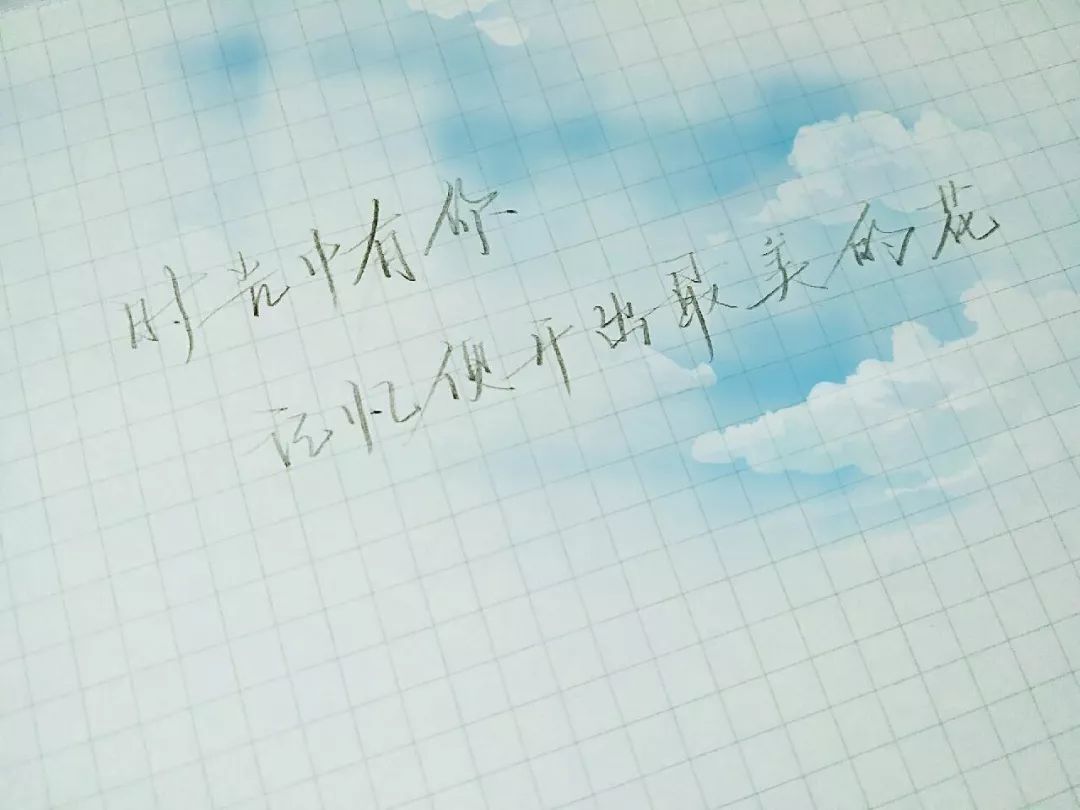 时光中有你
记忆便开出最美的花